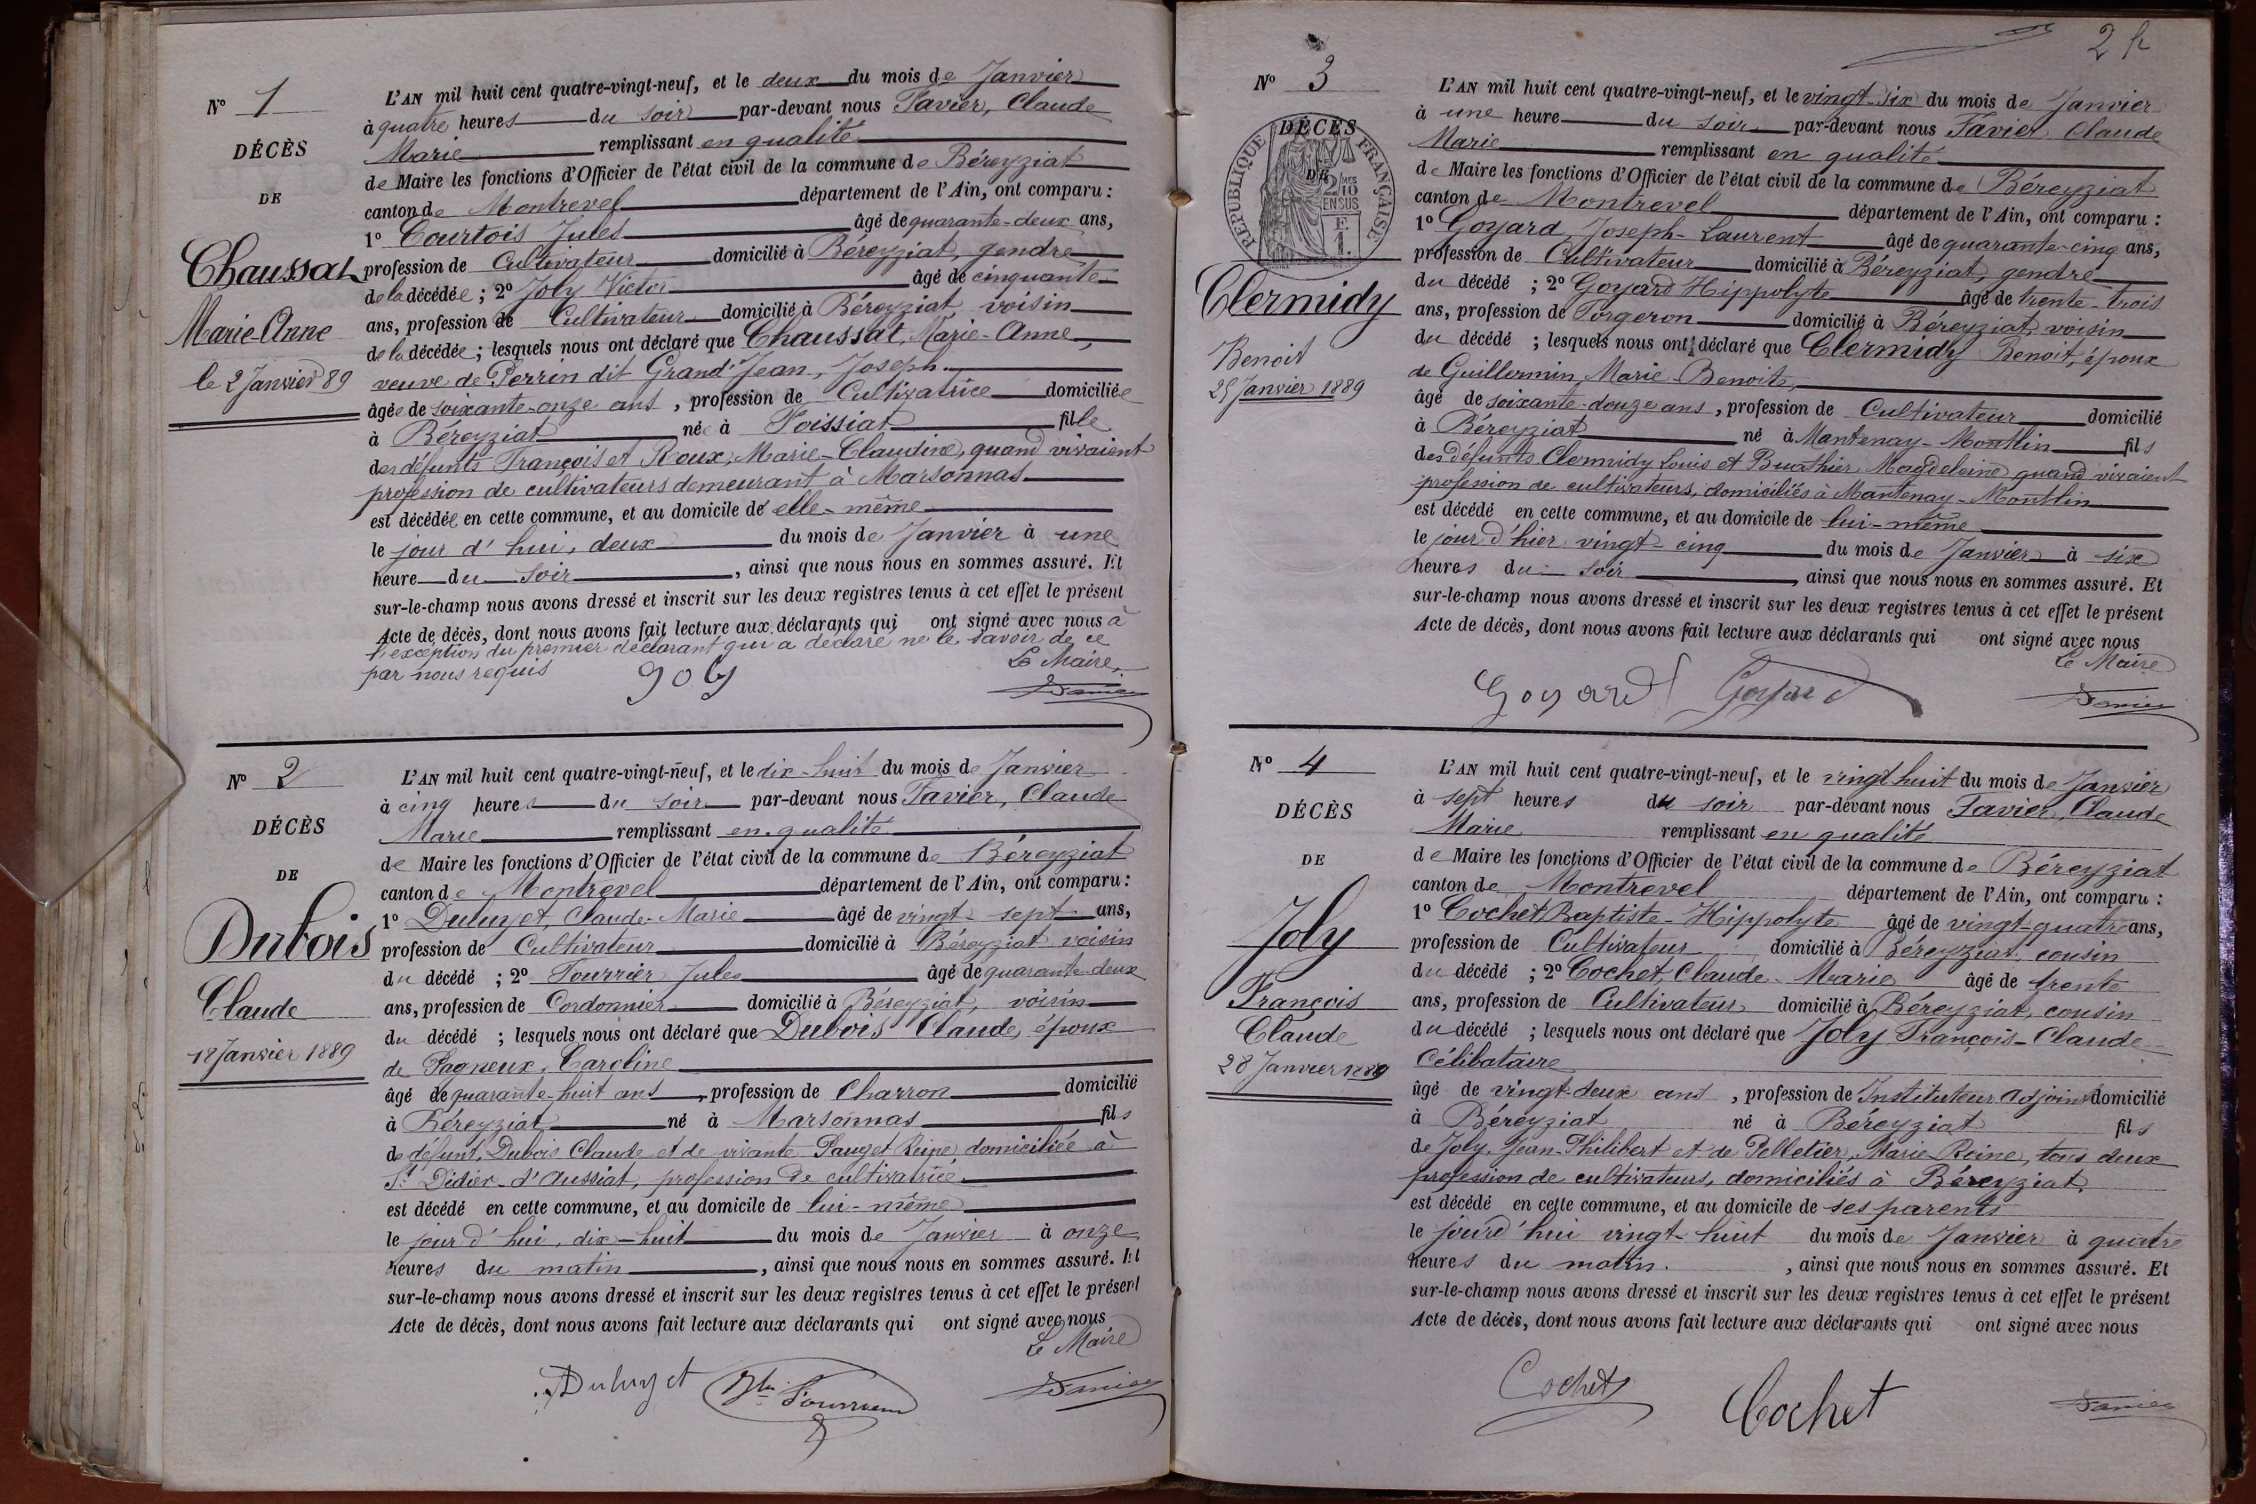 N° 1
DÉCÈS
DE
Chaussat
Marie-Anne
le 2 Janvier 89
L'AN mil huit cent quatre-vingt-neuf, et le deux du mois de Janvier
à quatre heures du soir par-devant nous Favier, Claude
Marie remplissant en qualité
de Maire les fonctions d'Officier de l'état civil de la commune de Béreyziat
canton de Montrevel département de l'Ain, ont comparu :
1° Courtois Jules âgé de quarante-deux ans,
profession de Cultivateur domicilié à Béreyziat, gendre
de la décédée ; 2° Joly Victor âgé de cinquante
ans, profession de Cultivateur domicilié à Béreyziat, voisin
de la décédée ; lesquels nous ont déclaré que Chaussat, Marie-Anne,
veuve de Perrin dit Grand'Jean, Joseph
âgée de soixante-onze ans, profession de Cultivatrice domiciliée
à Béreyziat née à Foissiat fille
des défunts François et Roux, Marie-Claudine, quand vivaient
profession de cultivateurs demeurant à Marsonnas
est décédée en cette commune, et au domicile de elle-même
le jour d'hui, deux du mois de Janvier à une
heure du soir, ainsi que nous nous en sommes assuré. Et
sur-le-champ nous avons dressé et inscrit sur les deux registres tenus à cet effet le présent
Acte de décès, dont nous avons fait lecture aux déclarants qui ont signé avec nous à
l'exception du premier déclarant qui a déclaré ne le savoir de ce
par nous requis Le Maire,
Joly Favier
N° 2
DÉCÈS
DE
Dubois
Claude
18 Janvier 1889
L'AN mil huit cent quatre-vingt-neuf, et le dix-huit du mois de Janvier
à cinq heures du soir par-devant nous Favier, Claude
Marie remplissant en qualité
de Maire les fonctions d'Officier de l'état civil de la commune de Béreyziat
canton de Montrevel département de l'Ain, ont comparu :
1° Duluyet, Claude-Marie âgé de vingt-sept ans,
profession de Cultivateur domicilié à Béreyziat voisin
du décédé ; 2° Fourrier Jules âgé de quarante-deux
ans, profession de Cordonnier domicilié à Béreyziat, voisin
du décédé ; lesquels nous ont déclaré que Dubois Claude, époux
de Pagneux, Caroline
âgé de quarante-huit ans, profession de Charron domicilié
à Béreyziat né à Marsonnas fils
de défunt, Dubois Claude et de vivante Pauget Reine, domiciliée à
St Didier-d'Aussiat, profession de cultivatrice
est décédé en cette commune, et au domicile de lui-même
le jour d'hui, dix-huit du mois de Janvier à onze
heures du matin, ainsi que nous nous en sommes assuré. Et
sur-le-champ nous avons dressé et inscrit sur les deux registres tenus à cet effet le présent
Acte de décès, dont nous avons fait lecture aux déclarants qui ont signé avec nous
Le Maire
Duluyet Fourrier Favier
2
N° 3
DÉCÈS
DE
RÉPUBLIQUE FRANÇAISE
2/10 EN SUS
Clermidy
Benoit
25 Janvier 1889
L'AN mil huit cent quatre-vingt-neuf, et le vingt-six du mois de Janvier
à une heure du soir par-devant nous Favier, Claude
Marie remplissant en qualité
de Maire les fonctions d'Officier de l'état civil de la commune de Béreyziat
canton de Montrevel département de l'Ain, ont comparu :
1° Goyard, Joseph-Laurent âgé de quarante-cinq ans,
profession de Cultivateur domicilié à Béreyziat, gendre
du décédé ; 2° Goyard Hippolyte âgé de trente-trois
ans, profession de Forgeron domicilié à Béreyziat, voisin
du décédé ; lesquels nous ont déclaré que Clermidy Benoit, époux
de Guillermin, Marie-Benoite,
âgé de soixante-douze ans, profession de Cultivateur domicilié
à Béreyziat né à Mantenay-Montlin fils
des défunts Clermidy Louis et Buathier Magdeleine quand vivaient
profession de cultivateurs, domiciliés à Mantenay-Montlin
est décédé en cette commune, et au domicile de lui-même
le jour d'hier vingt-cinq du mois de Janvier à six
heures du soir, ainsi que nous nous en sommes assuré. Et
sur-le-champ nous avons dressé et inscrit sur les deux registres tenus à cet effet le présent
Acte de décès, dont nous avons fait lecture aux déclarants qui ont signé avec nous
Le Maire
Goyard Goyard Favier
N° 4
DÉCÈS
DE
Joly
François
Claude
28 Janvier 1889
L'AN mil huit cent quatre-vingt-neuf, et le vingt huit du mois de Janvier
à sept heures du soir par-devant nous Favier, Claude
Marie remplissant en qualité
de Maire les fonctions d'Officier de l'état civil de la commune de Béreyziat
canton de Montrevel département de l'Ain, ont comparu :
1° Cochet Baptiste-Hippolyte âgé de vingt-quatre ans,
profession de Cultivateur domicilié à Béreyziat cousin
du décédé ; 2° Cochet, Claude-Marie âgé de trente
ans, profession de Cultivateur domicilié à Béreyziat, cousin
du décédé ; lesquels nous ont déclaré que Joly François-Claude
Célibataire
âgé de vingt-deux ans, profession de Instituteur adjoint domicilié
à Béreyziat né à Béreyziat fils
de Joly, Jean-Philibert et de Pelletier, Marie Reine, tous deux
profession de cultivateurs, domiciliés à Béreyziat,
est décédé en cette commune, et au domicile de ses parents
le jour d'hui vingt-huit du mois de Janvier à quatre
heures du matin, ainsi que nous nous en sommes assuré. Et
sur-le-champ nous avons dressé et inscrit sur les deux registres tenus à cet effet le présent
Acte de décès, dont nous avons fait lecture aux déclarants qui ont signé avec nous
Cochet Cochet Favier